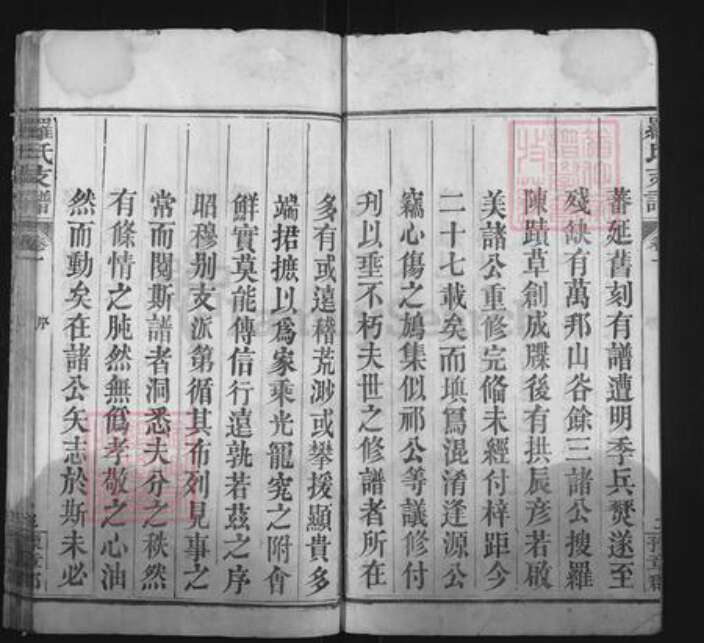 羅氏支譜
卷一
蕃延舊刻有譜遭明季兵燹遂至
殘缺有萬邦山谷餘三諸公搜羅
陳蹟草創成牒後有拱辰彦若啟
美諸公重修完俻未經付梓距今
二十七載矣而塤篪混淆逢源公
竊心傷之鳩集似祁公等議修付
刋以垂不朽夫世之修譜者所在
多有或遠稽荒渺或攀援顯貴多
端捃摭以爲家乘光寵究之附會
鮮實莫能傳信行遠孰若茲之序
昭穆别支派第循其布列見事之
常而閱斯譜者洞悉夫分之秩然
有條情之肫然無僞孝敬之心油
然而動矣在諸公矢志於斯未必
羅氏支譜
卷一
序